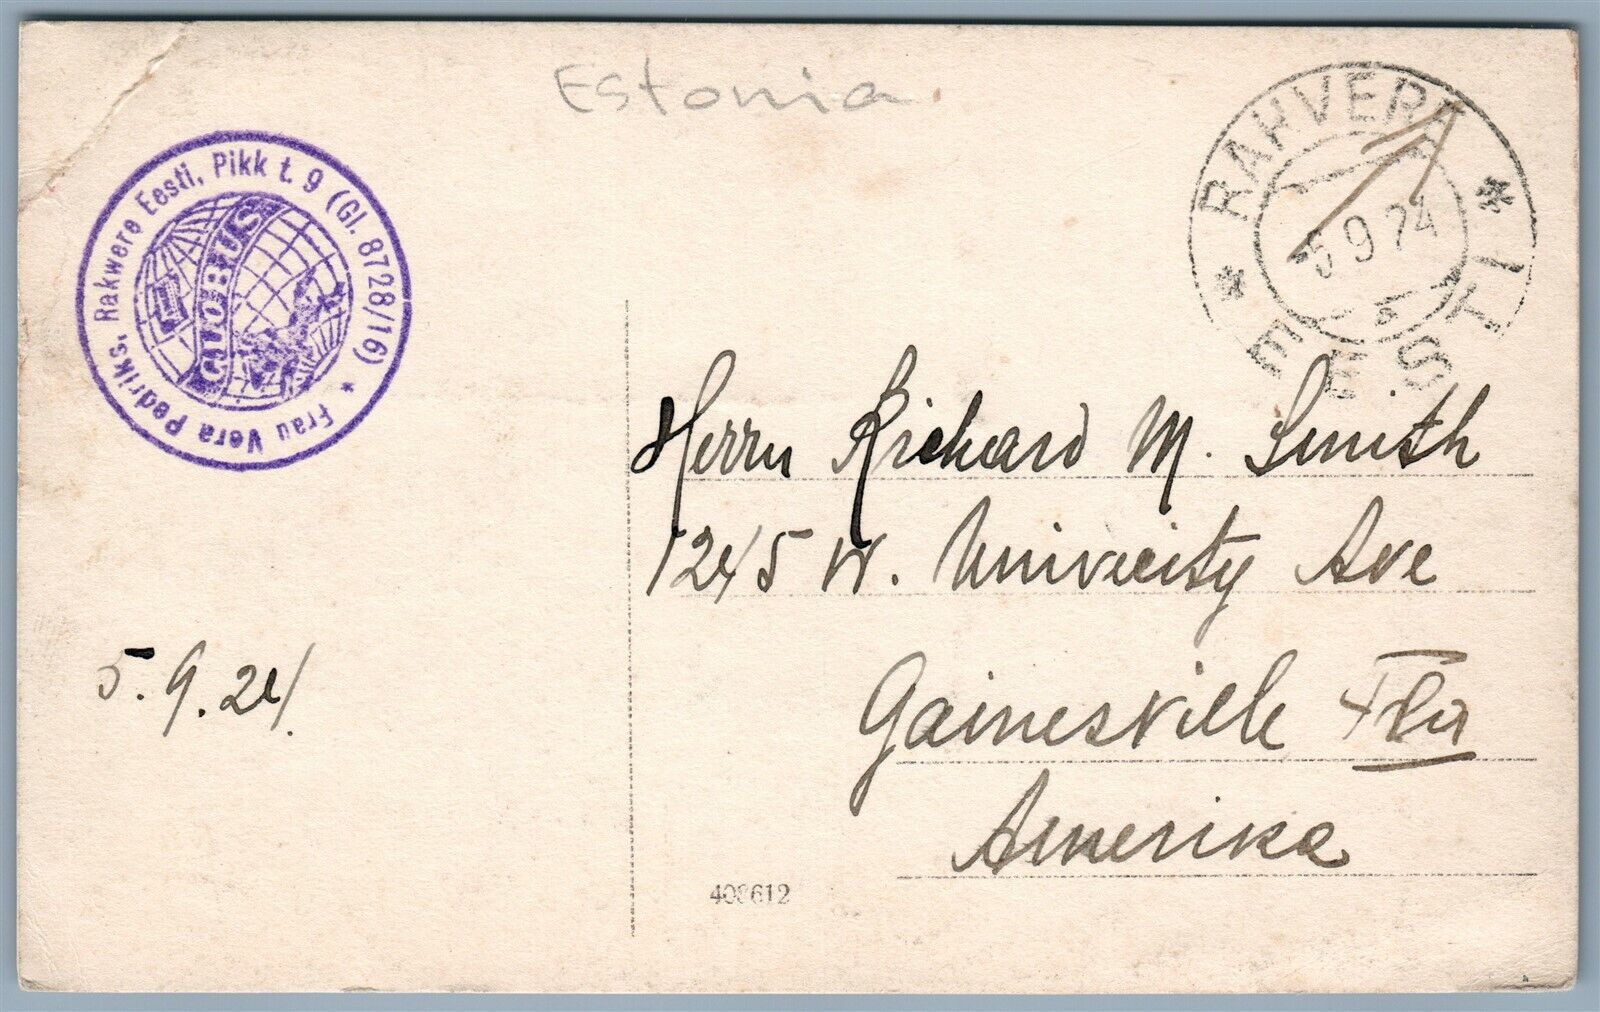 Estonia
Frau Vera Pedriks, Rakwere Eesti, Pikk t. 9 (Gl. 8728/16) *
GLOBUS
* RAKVERE *
5 9 24
b
EESTI
Herrn Richard M. Smith
1245 W. Univecity Ave
Gainesville Fla
Amerika
5. 9. 24.
408612